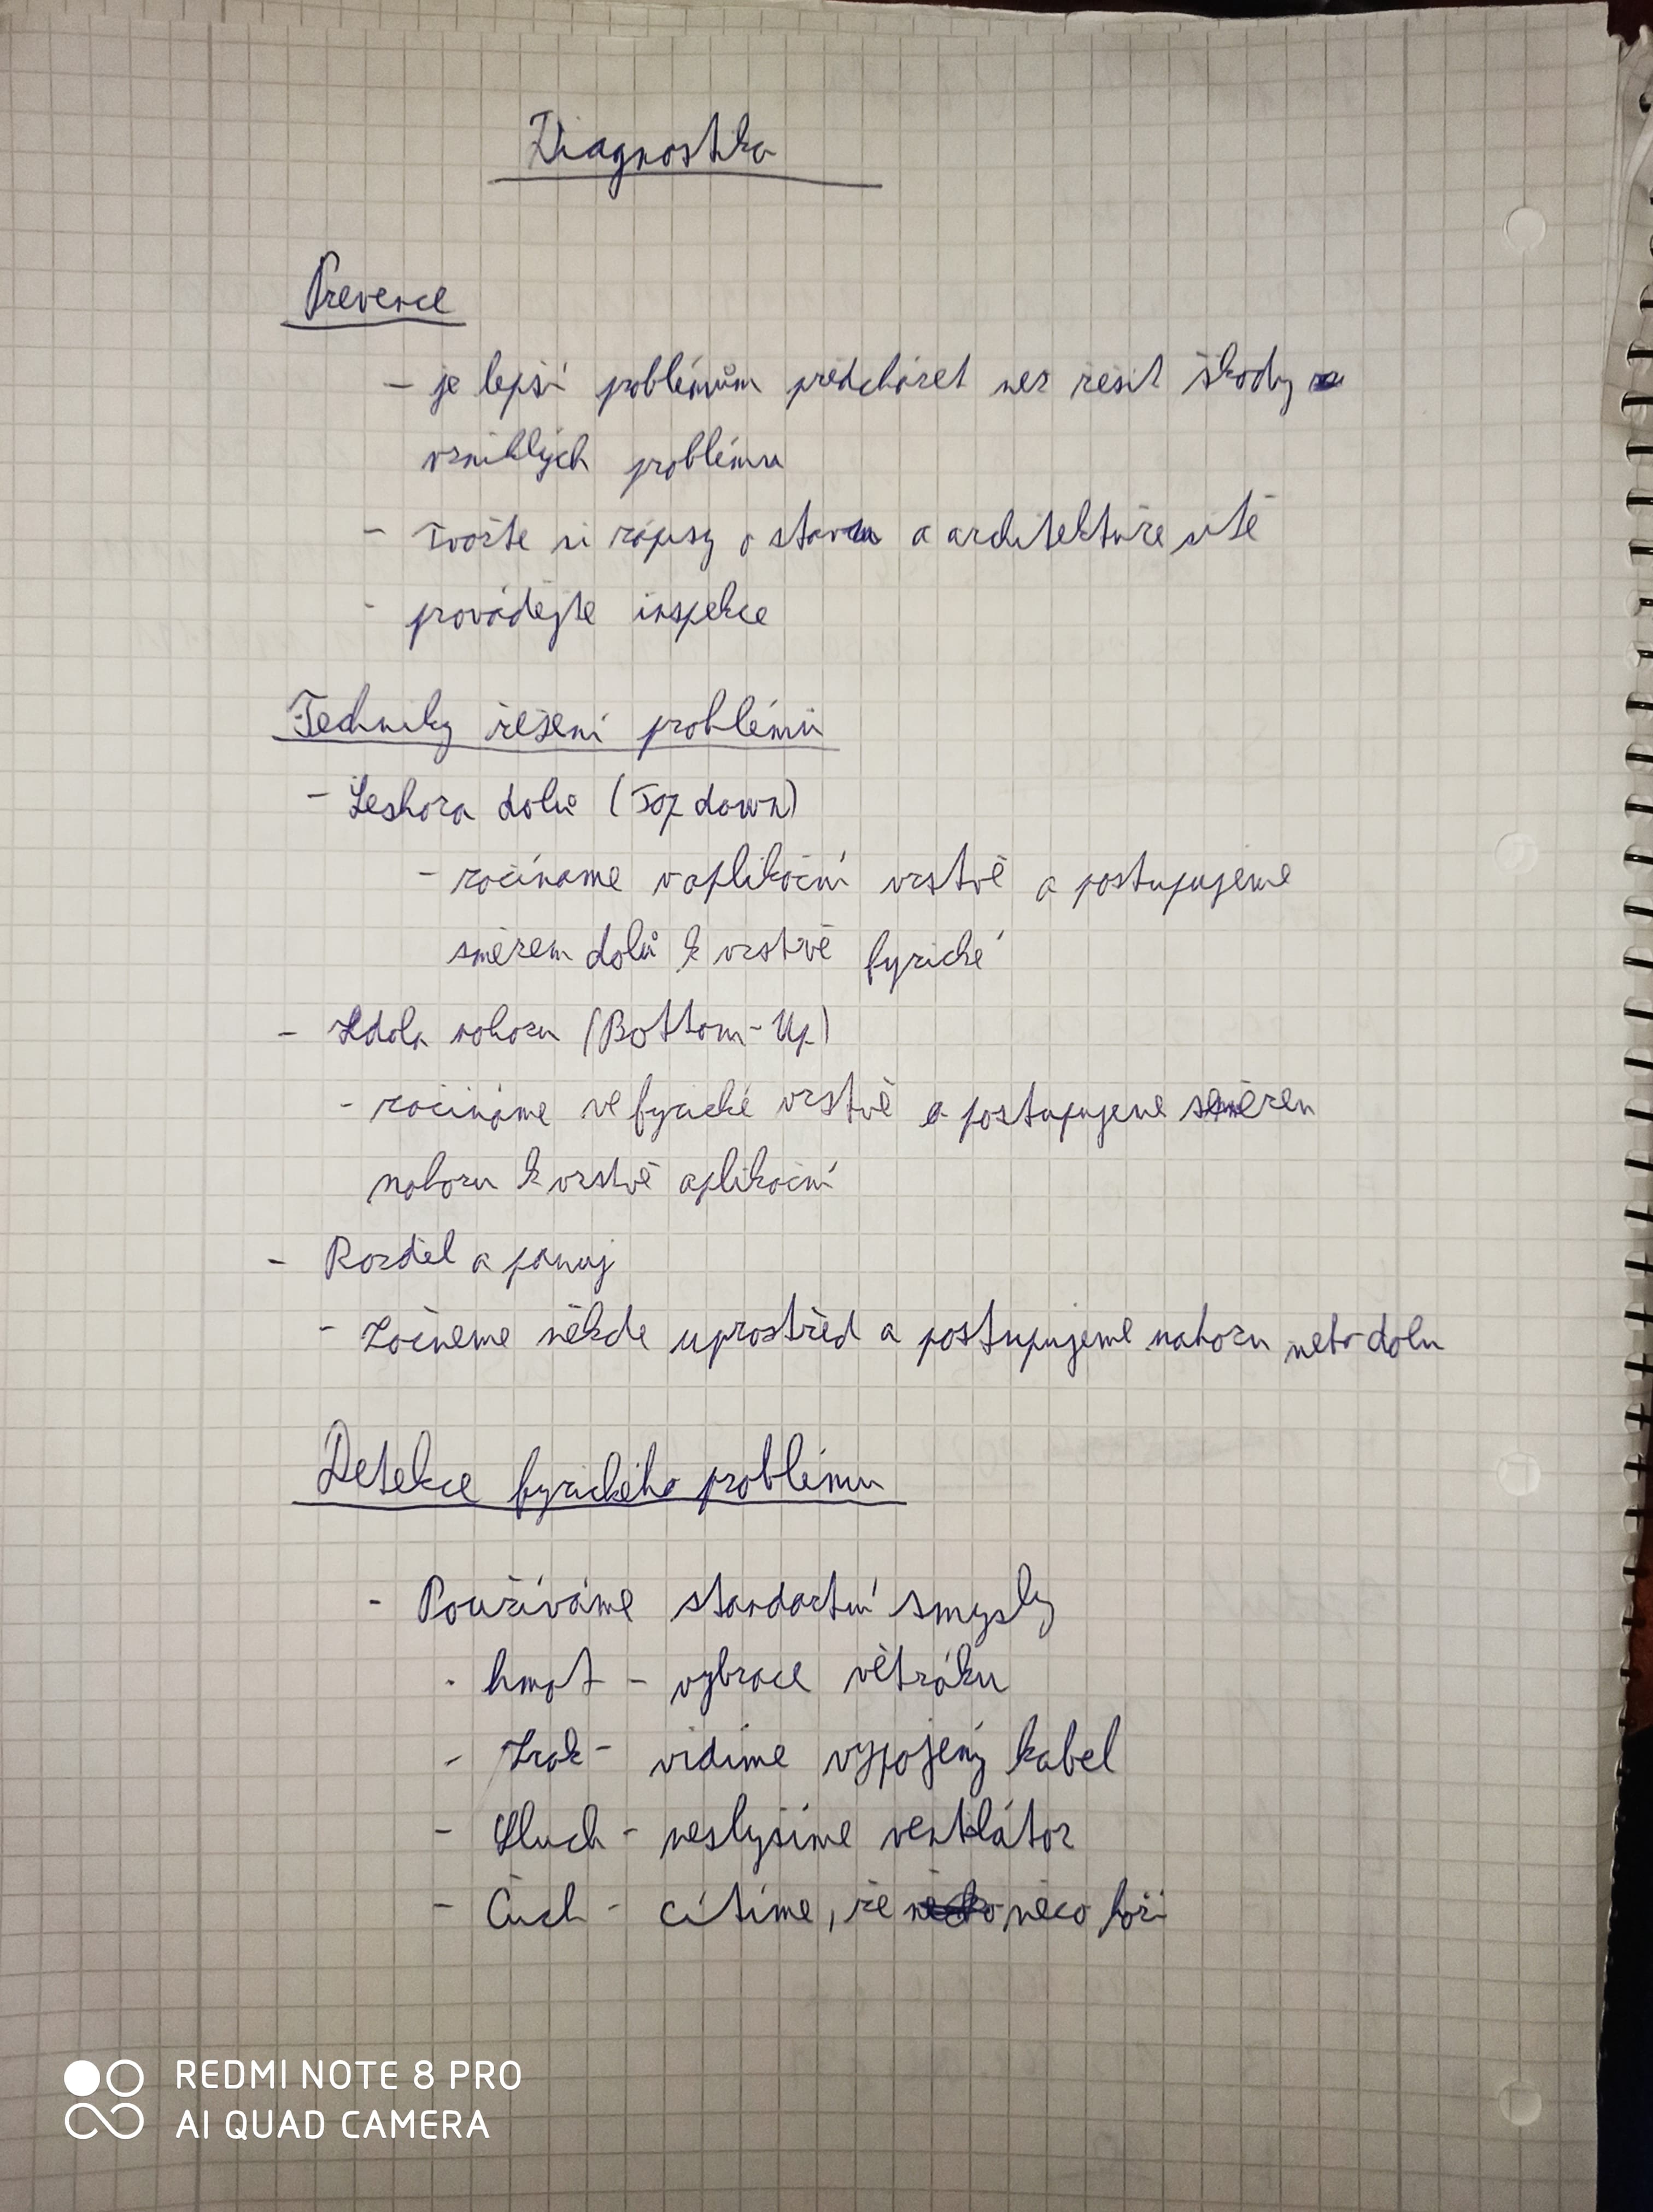 Diagnostika
Prevence
- je lepší problémům předcházet než řešit škody
vzniklých problému
- Tvořte si zápisy o stavu a architektuře sítě
- provádějte inspekce
Techniky řešení problémů
- Zeshora dolů (Top down)
- začínáme v aplikační vrstvě a postupujeme
směrem dolů k vrstvě fyzické
- Zdola nahoru (Bottom-Up)
- začínáme ve fyzické vrstvě a postupujeme směrem
nahoru k vrstvě aplikační
- Rozděl a panuj
- Začneme někde uprostřed a postupujeme nahoru nebo dolu
Detekce fyzického problému
- Používáme standartní smysly
- hmat - vybrace větráku
- Zrak - vidíme vypojený kabel
- Sluch - neslyšíme ventilátor
- Čich - cítíme, že něco hoří
REDMI NOTE 8 PRO
AI QUAD CAMERA